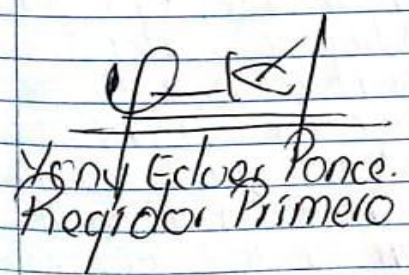 Yony Edver Ponce.
Regidor Primero